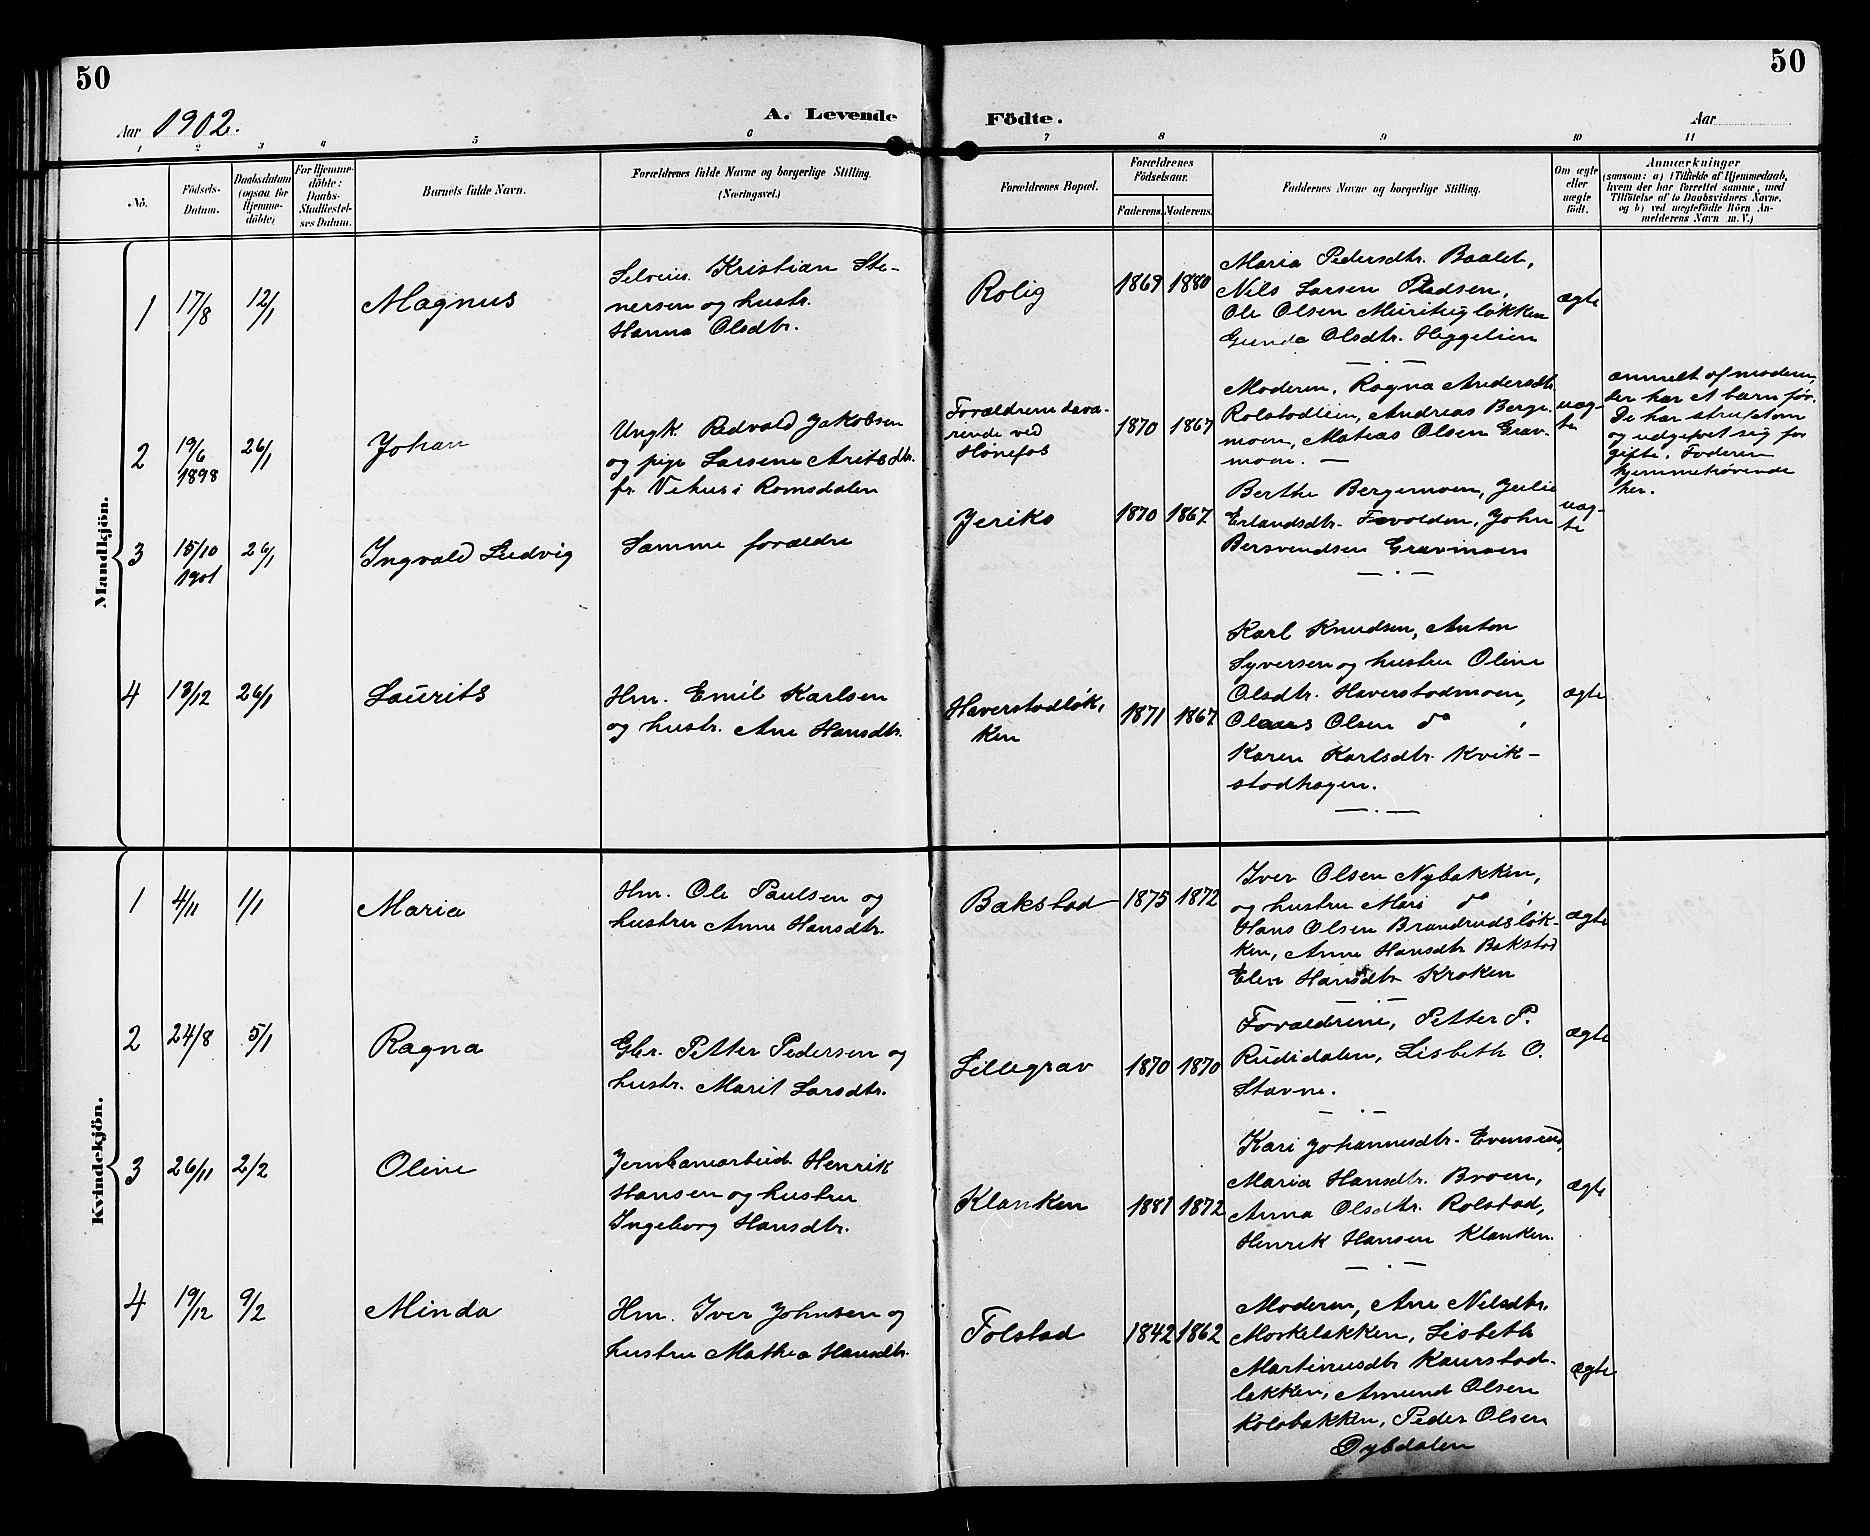 50
50
Aar 1902.
A. Levende
Födte.
Aar
1 2 3 4 5 6 7 8 9 10 11
No.
Födsels-
Datum.
Daabsdatum
(ogsaa for
Hjemme-
döbte)
For Hjemme-
döbte:
Daabs-
Stadfæstel-
ses Datum.
Barnets fulde Navn.
Forældrenes fulde Navne og borgerlige Stilling.
(Næringsvei.)
Forældrenes Bopæl.
Forældrenes
Födselsaar.
Faderens.
Moderens.
Faddernes Navne og borgerlige Stilling.
Om ægte
eller
uægte
født.
Anmærkninger
(saasom: a) i Tilfælde af Hjemmedaab,
hvem der har forrettet samme, med
Tilföielse af to Daabsvidners Navne,
og b) ved uægtefödte Börn An-
melderens Navn m. V.)
Mandkjön.
1
17/8
12/1
Magnus
Kristian Ste-
nersen og hustr.
Hanna Olsdtr.
Rolig
1869
1880
Maria Pedersdtr.
Nils Larsen
Ole Olsen
Olsdtr. Heggelien
ægte
2
19/6
1898
26/1
Johan
Ungk. Redvald Jakobsen
og pige Larsene
fr. i Romsdalen
Forældrene
ved
Hønefos
1870
1867
Moderen, Ragna Andersdtr.
Rolstadlien, Andreas Berge-
moen, Matias Olsen Grav-
moen.
uæg-
te
anmelt af moderen,
der har et barn før.
De har
og udgivet sig for
gifte. Faderen
hjemmehørende
her.
3
15/10
1901
26/1
Ingvald Ludvig
Samme forældre
Jeriko
1870
1867
Berthe Bergemoen, Julie
Erlandsdtr. John
Bersvendsen Gravmoen
uæg-
te
4
13/12
26/1
Laurits
Hm. Emil Karlsen
og hustr. Ane Hansdtr.
Haverstadløk-
ken
1871
1867
Karl Knudsen, Anton
Syversen og hustru Oline
Olsdtr. Haverstadmoen,
Olaus Olsen do,
Karen Karlsdtr. Kvik-
stadhagen.
ægte
Kvindekjön.
1
4/11
1/1
Maria
Hm. Ole Paulsen og
hustru Anne Hansdtr.
Bakstad
1875
1872
Iver Olsen Nybakken,
og hustru Mari do,
Hans Olsen Brandrudsløk-
ken, Anne Hansdtr. Bakstad
Elen Hansdtr. Kroken
ægte
2
24/8
5/1
Ragna
Gbr. Petter Pedersen og
hustr. Marit Larsdtr.
Lillegrav
1870
1870
Forældrene, Petter P.
Rudidalen, Lisbeth O.
Stavne.
ægte
3
26/11
2/2
Oline
Jernbanearbeid. Henrik
Hansen og hustru
Ingeborg Hansdtr.
Klanken
1881
1872
Kari Johannesdtr. Evensrud,
Maria Hansdtr. Broen,
Anna Olsdtr. Rolstad,
Henrik Hansen Klanken.
ægte
4
19/12
9/2
Minda
Hm. Iver Johnsen og
hustru Mathea Hansdtr.
Tolstad
1842
1862
Moderen, Ane Nilsdtr.
Lisbeth
Martinusdtr.
Amund Olsen
Peder Olsen
Dybdalen
ægte